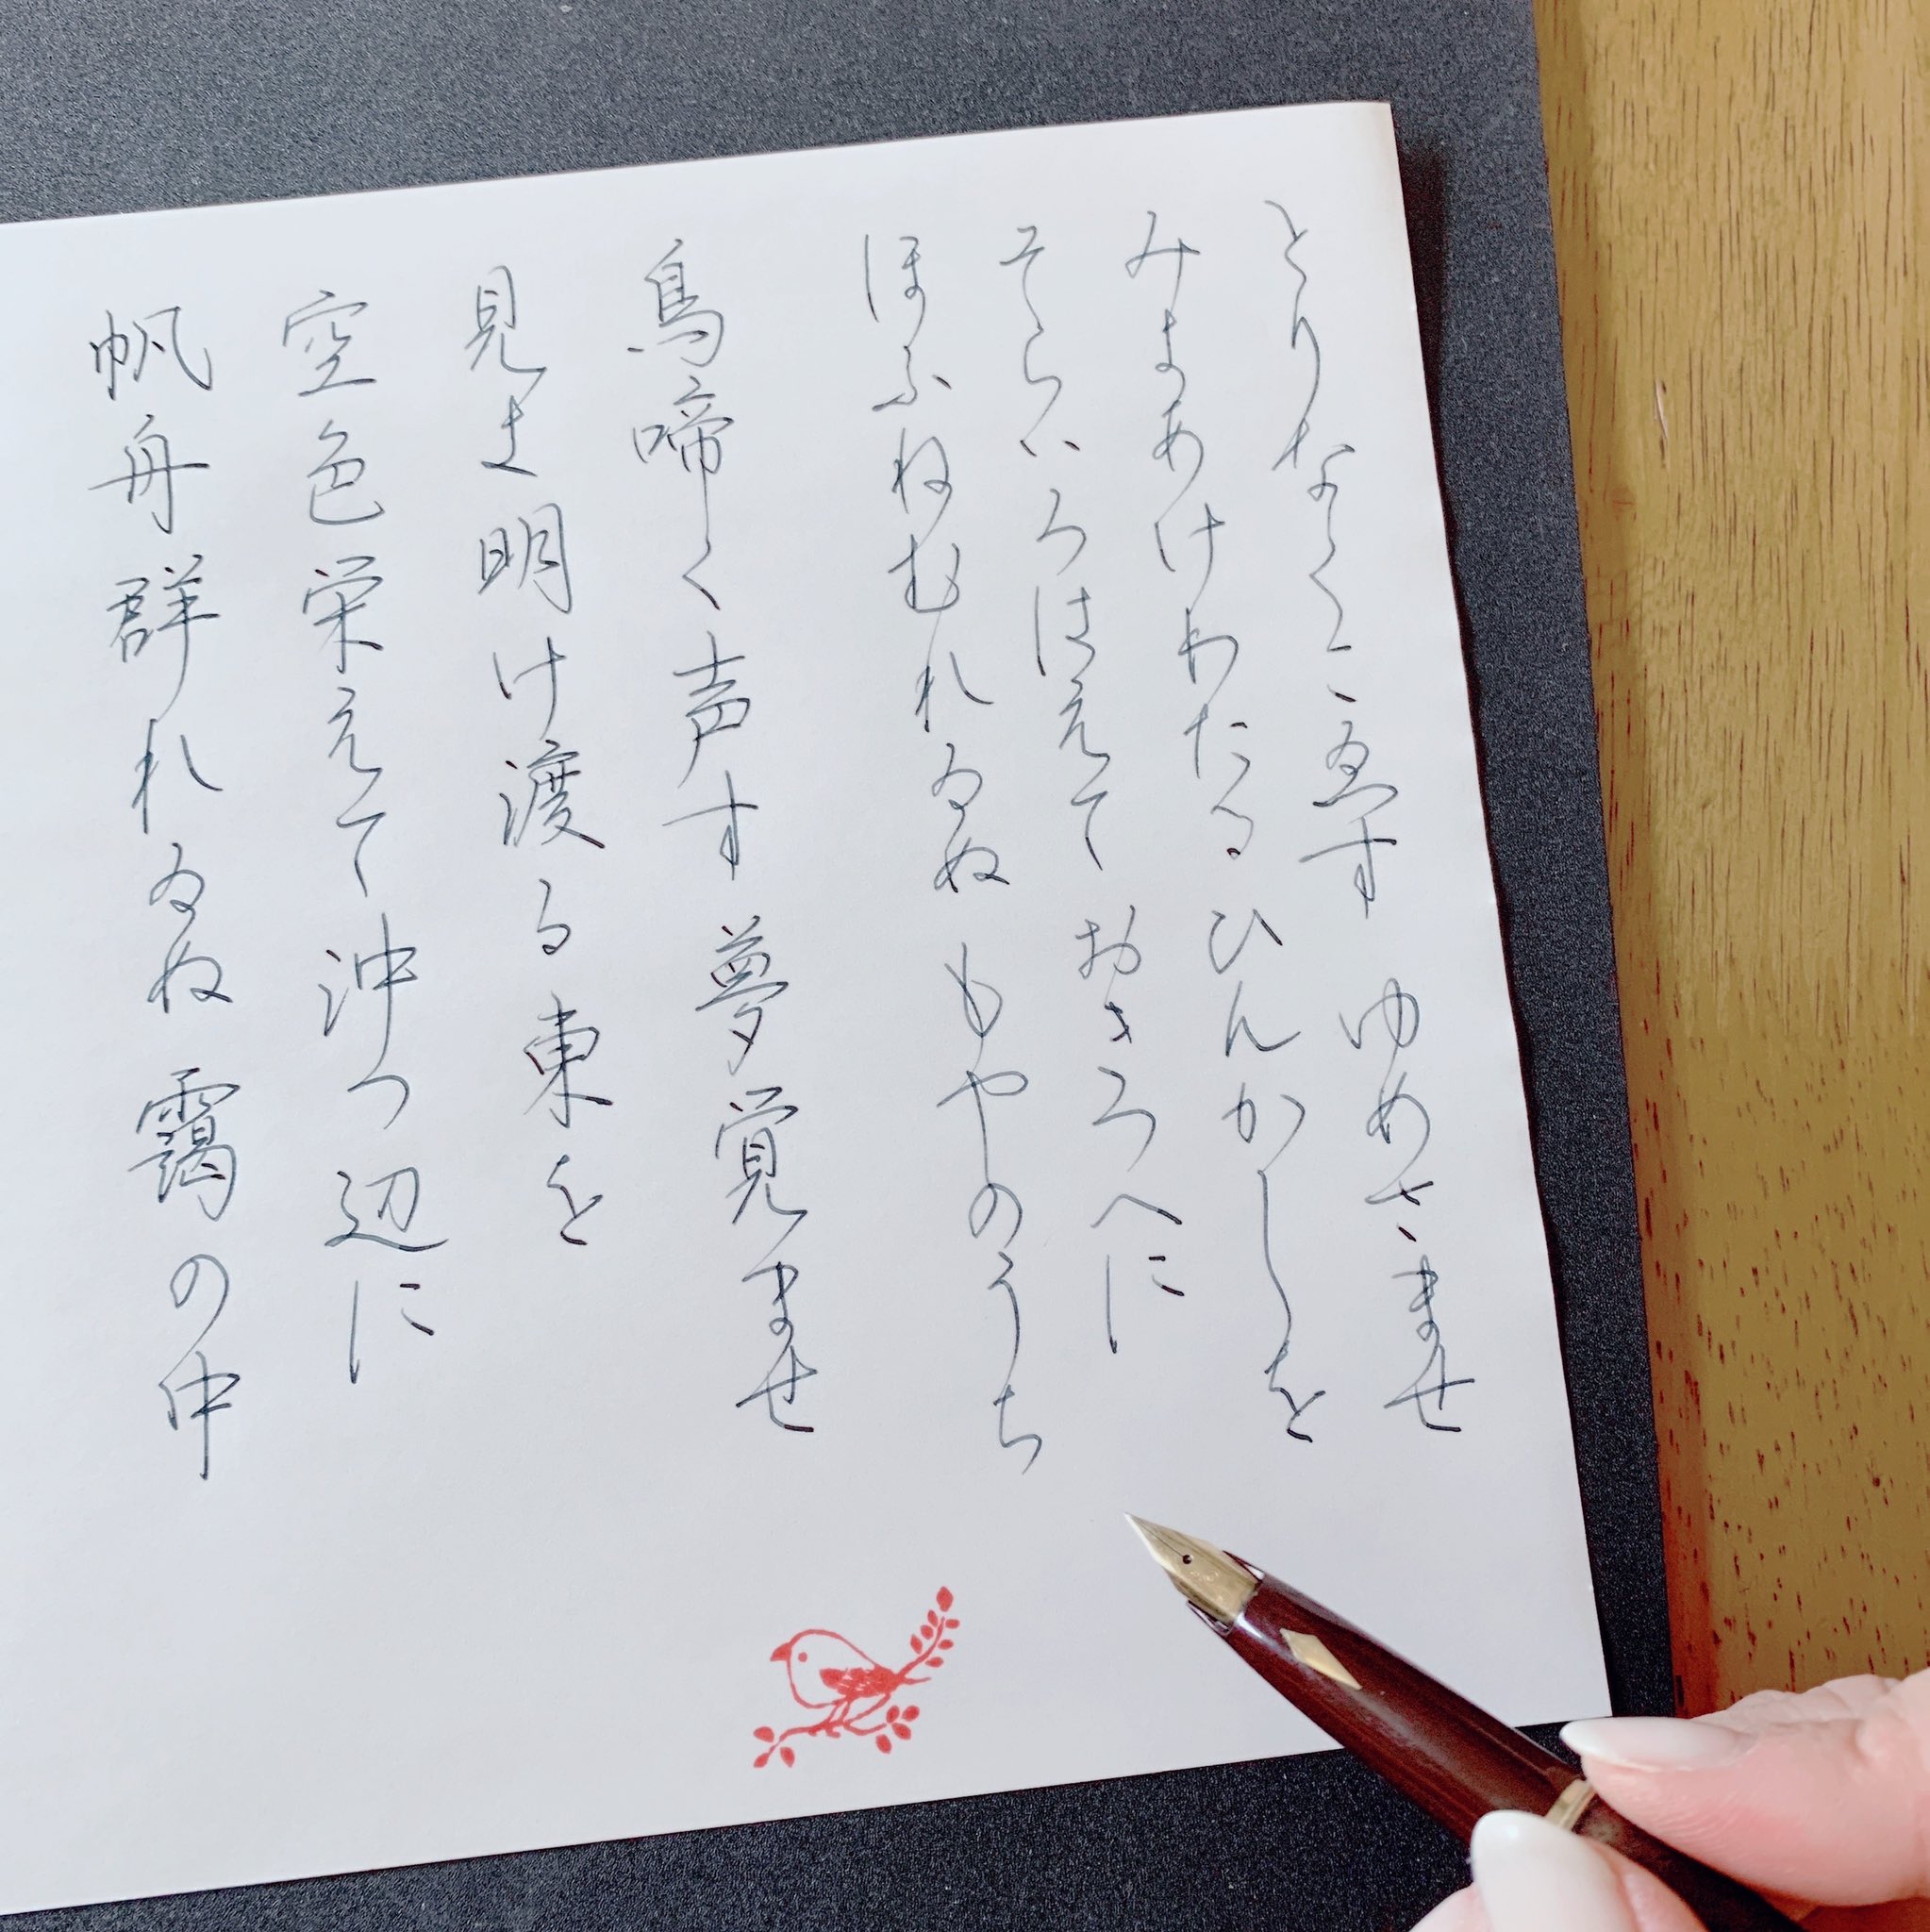 とりなくこゑす ゆめさませ
みよあけわたる ひんかしを
そらいろはえて おきつへに
ほふねむれゐぬ もやのうち
鳥啼く声す 夢覚ませ
見よ明け渡る 東を
空色栄えて 沖つ辺に
帆舟群れゐぬ 靄の中